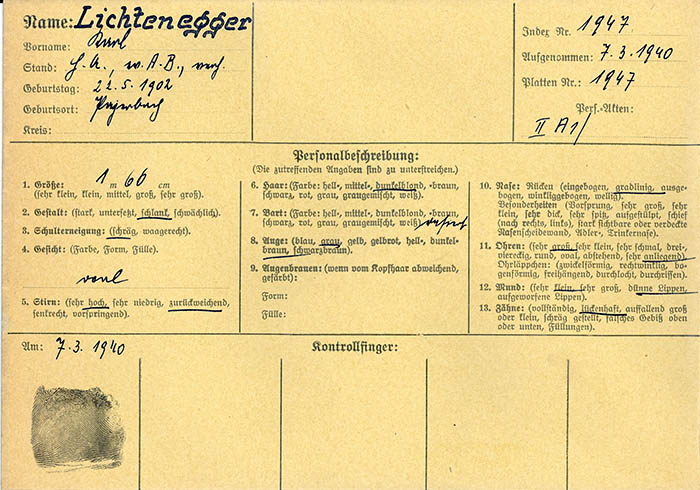 Name: Lichtenegger
Vorname: Karl
Stand: H. A., w. A. B., verh.
Geburtstag: 22. 5. 1902
Geburtsort: Payerbach
Kreis:
Index Nr. 1947
Aufgenommen: 7. 3. 1940
Platten Nr.: 1947
Pers.-Akten:
II A1/
Personalbeschreibung:
(Die zutreffenden Angaben sind zu unterstreichen.)
1. Größe: 1 m 66 cm
(sehr klein, klein, mittel, groß, sehr groß).
2. Gestalt: (stark, untersetzt, schlank, schwächlich).
3. Schulterneigung: (schräg, waagerecht).
4. Gesicht: (Farbe, Form, Fülle).
oval
5. Stirn: (sehr hoch, sehr niedrig, zurückweichend,
senkrecht, vorspringend).
6. Haar: (Farbe: hell-, mittel-, dunkelblond, -braun,
schwarz, rot, grau, graugemischt, weiß).
7. Bart: (Farbe: hell-, mittel-, dunkelblond, -braun,
schwarz, rot, grau, graugemischt, weiß)
8. Auge: (blau, grau, gelb, gelbrot, hell-, dunkel-
braun, schwarzbraun).
9. Augenbrauen: (wenn vom Kopfhaar abweichend,
gefärbt):
Form:
Fülle:
10. Nase: Rücken (eingebogen, gradlinig, ausge-
bogen, winkliggebogen, wellig).
Besonderheiten (Vorsprung, sehr groß, sehr
klein, sehr dick, sehr spitz, aufgestülpt, schief
(nach rechts, links), stark sichtbare oder verdeckte
Nasenscheidewand, Adler-, Trinkernase).
11. Ohren: (sehr groß, sehr klein, sehr schmal, drei-
viereckig, rund, oval, abstehend, sehr anliegend)
Ohrläppchen: (zwickelförmig, rechtwinklig, bo-
genförmig, freihängend, durchlocht, durchrissen).
12. Mund: (sehr klein, sehr groß, dünne Lippen,
aufgeworfene Lippen).
13. Zähne: (vollständig, lückenhaft, auffallend groß
oder klein, schräg gestellt, falsches Gebiß oben
oder unten, Füllungen).
Am: 7. 3. 1940
Kontrollfinger: